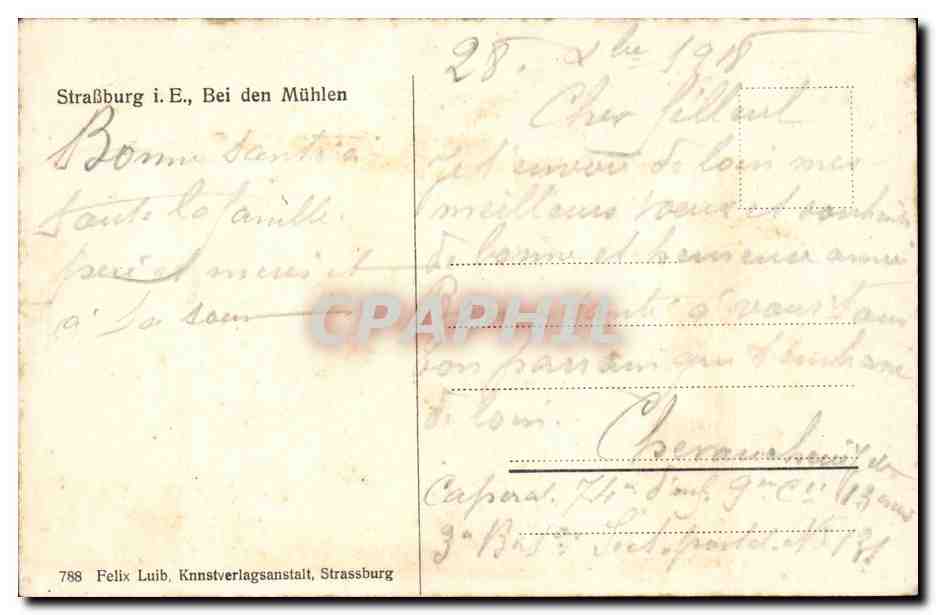 Straßburg i. E., Bei den Mühlen
Bonne santé a
toute la famille.
père et mère et
à ta sœur
788 Felix Luib, Knnstverlagsanstalt, Strassburg
28. Xbre 1918
Cher filleul
Je t'envoie de loin mes
meilleurs voeux et souhaits
de bonne et heureuse année
Bonne santé à vous tous
ton parrain qui t'embrasse
de loin.
Caporal. 74e d'inf. 9e Cie
3e B Sect postal No 131
CPAPHIL